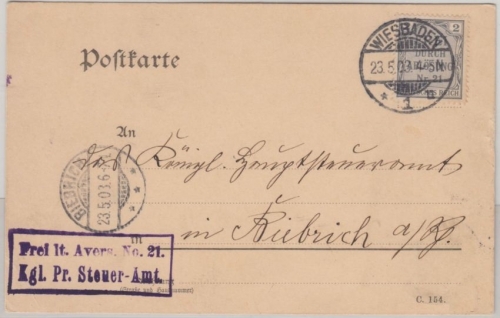 Postkarte
2
WIESBADEN
23.5.03.4-5N.
* 1 u
DURCH
Nr. 21
REICH
An
das Königl. Hauptsteueramt
BIEBRICH
23.5.03.6-7N.
in
in Biebrich a/Rh.
Frei lt. Avers. No. 21.
Kgl. Pr. Steuer-Amt.
(Straße und Hausnummer)
C. 154.